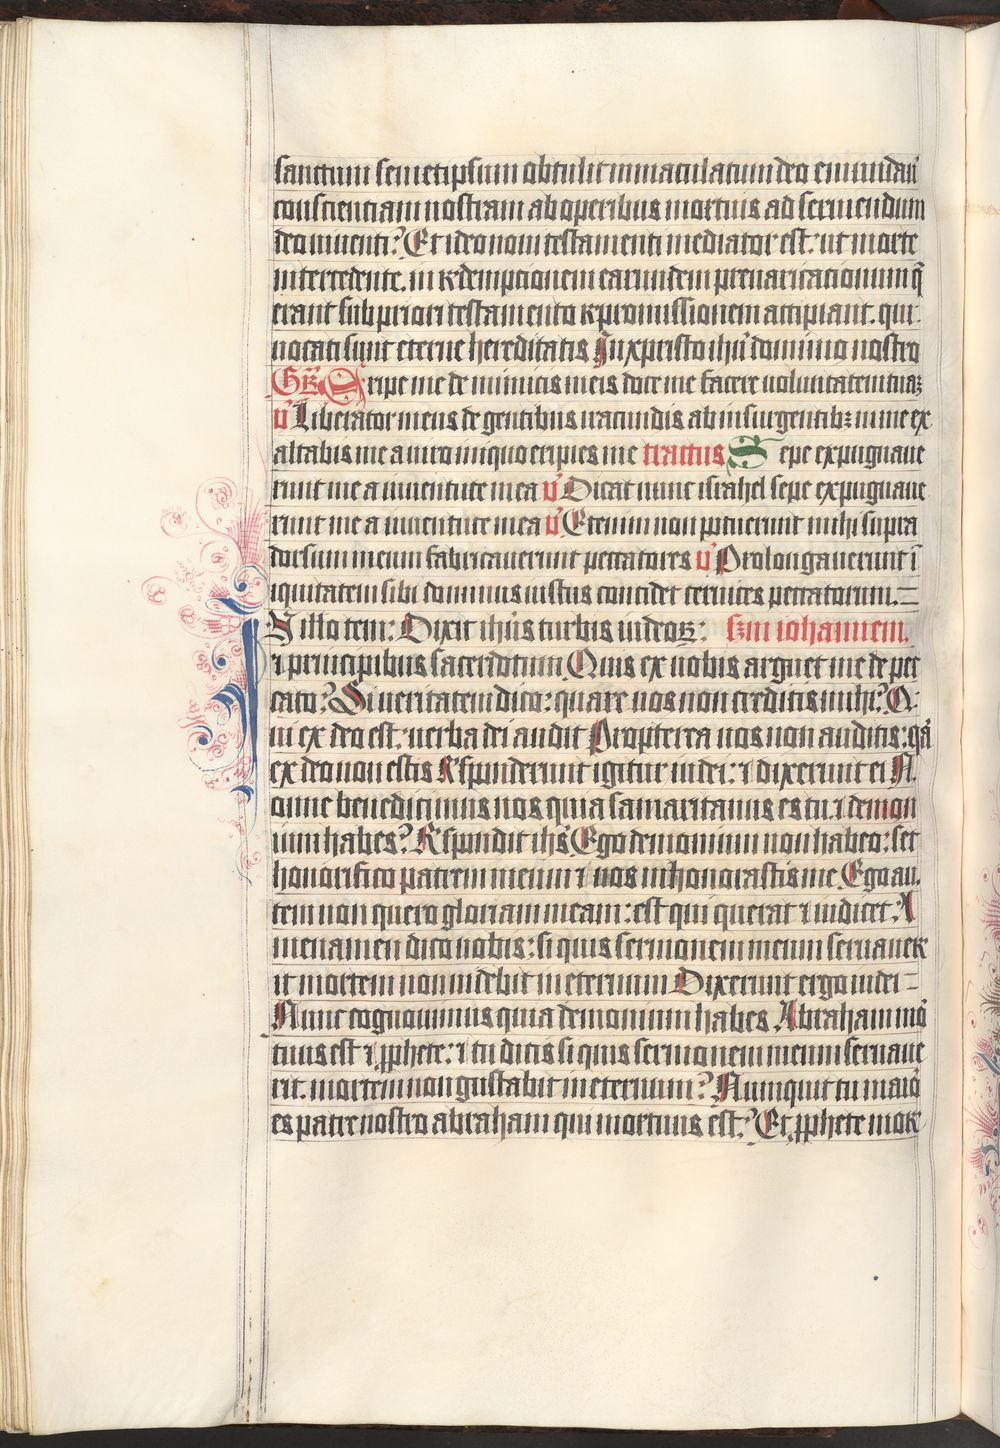 sanctum semetipsum obtulit inmaculatum deo emundaū
conscienciam nostram ab operibus mortuis ad seruiendum
deo uiuenti? Et ideo noui testamenti mediator est: ut morte
intercedente. in redemptionem earundem preuaricationum q̄
erant sub priori testamento repromissionem accipiant. qui
uocati sunt eterne hereditatis In xpristo ihū domino nostro
GR̄. Eripe me de inimicis meis doce me facere uoluntatem tuaꝫ
v̄ Liberator meus de gentibus iracundis ab insurgentibꝫ in me ex
altabis me a uiro iniquo eripies me tractus Sepe expugnaue
runt me a iuuentute mea v̄ Dicat nunc israhel sepe expugnaue
runt me a iuuentute mea v̄ Etenim non potuerunt mihi supra
dorsum meum fabricauerunt peccatores v̄ Prolongauerunt ī
iquitatem sibi dominus iustus concidet ceruices peccatorum.
IN illo tem: Dixit ihūs turbis iudeoꝝ: sꝫm iohannem.
⁊ principibus sacerdotum Quis ex uobis arguet me de pec
cato? Si ueritatem dico: quare uos non creditis mihi? Q
ui ex deo est: uerba dei audit Propterea uos non auditis: q̄a
ex deo non estis Responderunt igitur iudei: ⁊ dixerunt ei N
onne benedicimus nos quia samaritanus es tu. ⁊ demon
ium habes? Respondit ihs̄ Ego demonium non habeo: set
honorifico patrem meum ⁊ uos inhonorastis me Ego au.
tem non quero gloriam meam: est qui querat ⁊ iudicet: A
men amen dico uobis: si quis sermonem meum seruauer
it mortem non uidebit in eternum Dixerunt ergo iudei
Nunc cognouimus quia demonium habes Abraham mō
tuus est ⁊ ꝓphete: ⁊ tu dicis si quis sermonem meum seruaue
rit. mortem non gustabit in eternum? Numquit tu maiō
es patre nostro abraham qui mortuus est? Et ꝓphete mor